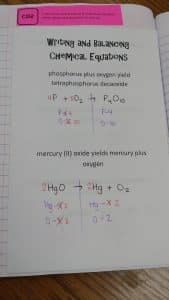 Writing and Balancing
Chemical Equations
phosphorus plus oxygen yield
tetraphosphorus decaoxide
4P + 5O₂ → P₄O₁₀
P-4
O-10
mercury (II) oxide yields mercury plus
oxygen
2HgO → 2Hg + O₂
Hg-1 2
Hg-1 2
O-1 2
O-2